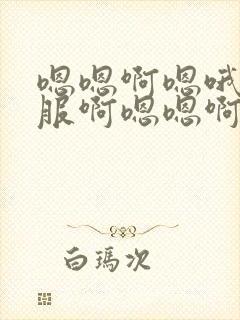 嗯嗯啊嗯哦
服啊嗯嗯啊
白瑪次